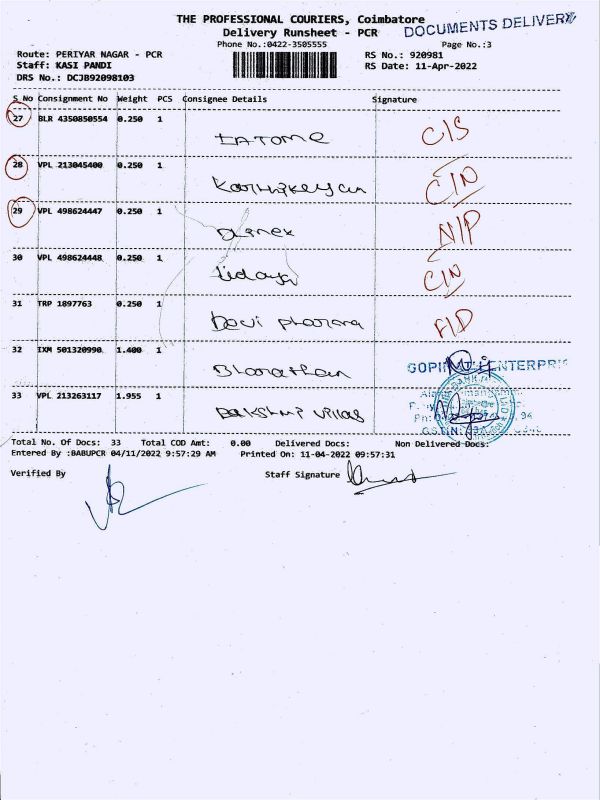 THE PROFESSIONAL COURIERS, Coimbatore
DOCUMENTS DELIVERY
Delivery Runsheet - PCR
Phone No.:0422-3505555 Page No.:3
Route: PERIYAR NAGAR - PCR RS No.: 920981
Staff: KASI PANDI RS Date: 11-Apr-2022
DRS No.: DCJB92098103
S No Consignment No Weight PCS Consignee Details Signature
27 BLR 4350850554 0.250 1 C/S
28 VPL 213045400 0.250 1 C/N
29 VPL 498624447 0.250 1 N/P
30 VPL 498624448 0.250 1 Udaya C/N
31 TRP 1897763 0.250 1 Devi Pharma F/D
32 IXM 501320990 1.400 1 Bharathan
GOPI ENTERPRI
33 VPL 213263117 1.955 1 vilas
Total No. Of Docs: 33 Total COD Amt: 0.00 Delivered Docs: Non Delivered Docs:
Entered By :BABUPCR 04/11/2022 9:57:29 AM Printed On: 11-04-2022 09:57:31
Verified By Staff Signature